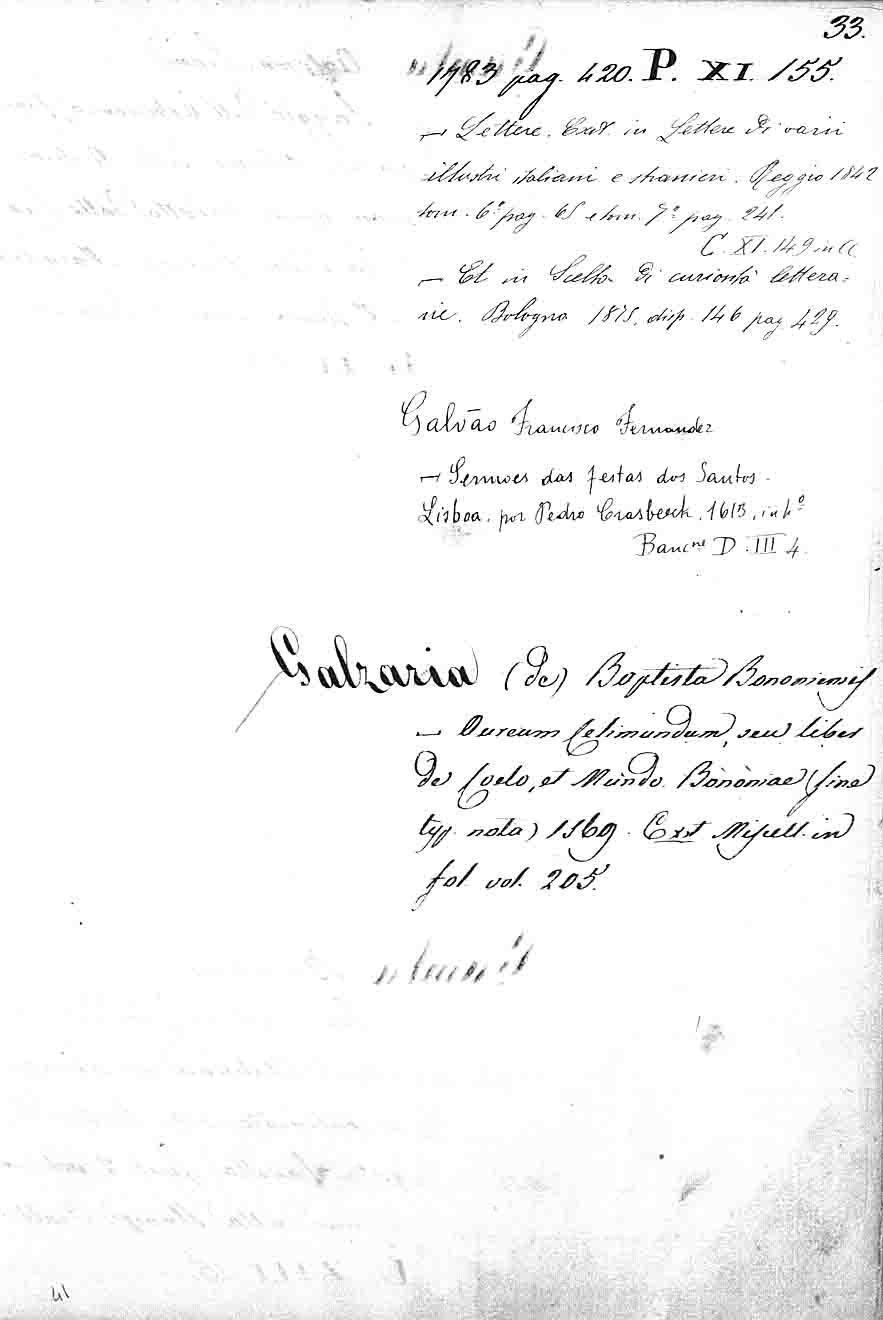 33.
1783 pag. 420. P. XI. 155.
— Lettere. Ext. in Lettere di varii
illustri italiani e stranieri. Reggio 1842
tom. 6.° pag. 65 e tom. 7.° pag. 241.
C. XI. 149 in
— Et in Scelta di curiosità lettera=
rie. Bologna 1875, disp. 146 pag 429.
Galvão Francisco Fernandez
— Sermoes das festas dos Santos.
Lisboa. por Pedro Crasbeeck. 1613, in 4°
Banc.ne D. III 4.
Galzaria (de) Baptista Bononiensis
— Aureum Celimundum, seu liber
de Coelo, et Mundo. Bononiae (sine
typ. nota) 1569. Ext Miscell. in
fol. vol. 205.
41